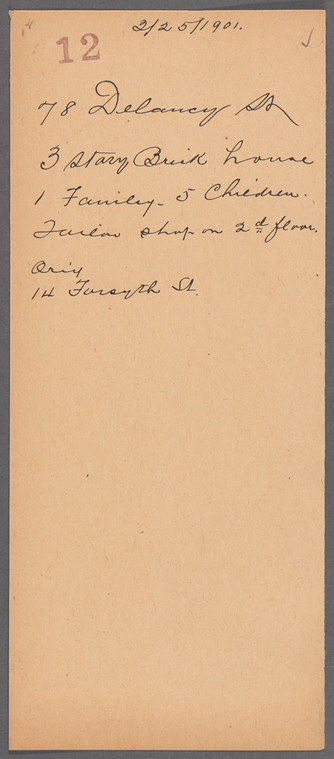 2/25/1901.
12
78 Delancy St
3 story Brick house
1 Family - 5 Children.
Tailor shop on 2d floor.
Orig
14 Forsyth St.